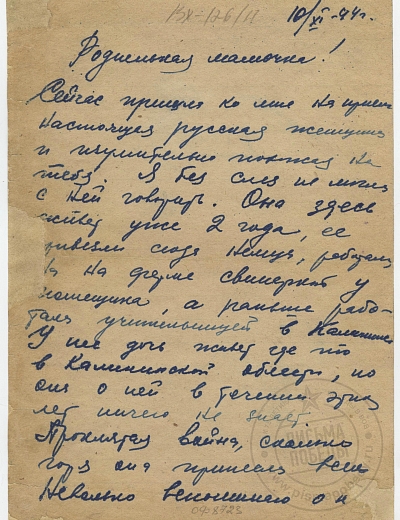 Вх-126/11
10/XI-44г.
Родненькая мамочка!
Сейчас пришла ко мне на прием
настоящая русская женщина
и изумительно похожая на
тебя. Я без слез не могла
с ней говорить. Она здесь
живет уже 2 года, ее
привезли сюда немцы, работала
на ферме свинаркой у
помещика, а раньше рабо-
тала учительницей в Калинине
У нее дочь живет где то
в Калининской области, но
она о ней в течении этих
лет ничего не знает.
Проклятая война, сколько
горя она принесла всем
Невольно вспоминаю о н
ПИСЬМА
ПОБЕДЫ
09-8723